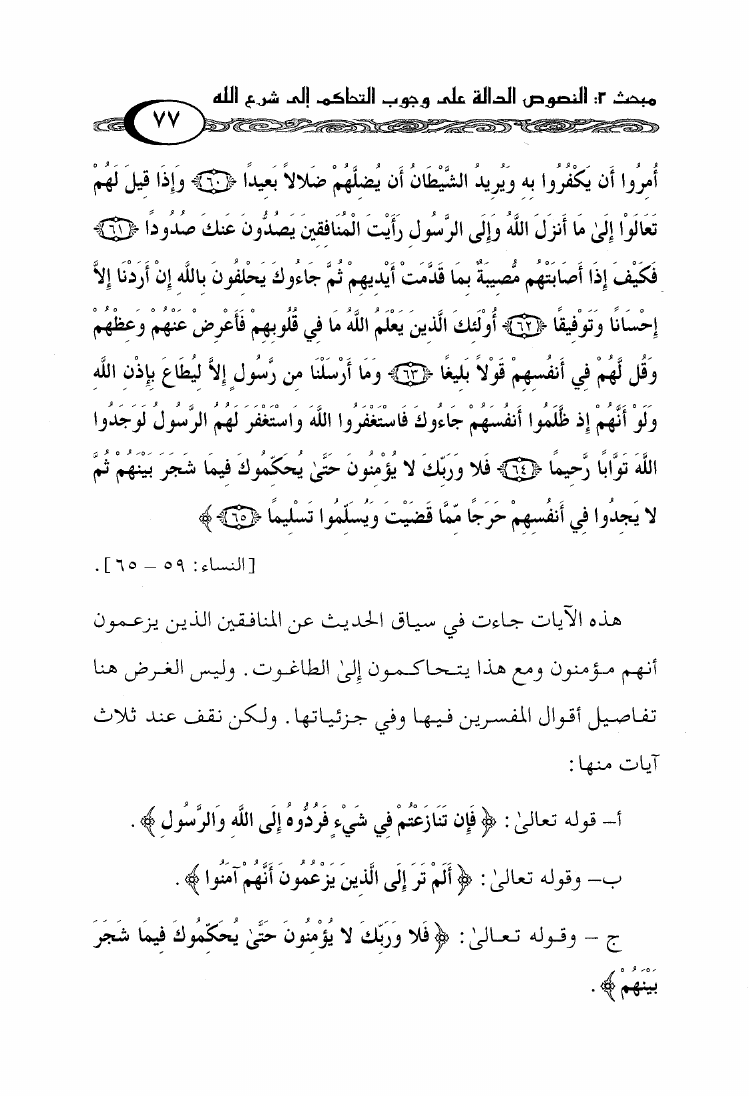 مبحث ٢: النصوص الدالة على وجوب التحاكم إلى شرع الله
٧٧
أُمِرُوا أَن يَكْفُرُوا بِهِ وَيُرِيدُ الشَّيْطَانُ أَن يُضِلَّهُمْ ضَلالاً بَعِيدًا ﴿٦٠﴾ وَإِذَا قِيلَ لَهُمْ
تَعَالَوْا إِلَىٰ مَا أَنزَلَ اللَّهُ وَإِلَى الرَّسُولِ رَأَيْتَ الْمُنَافِقِينَ يَصُدُّونَ عَنكَ صُدُودًا ﴿٦١﴾
فَكَيْفَ إِذَا أَصَابَتْهُم مُّصِيبَةٌ بِمَا قَدَّمَتْ أَيْدِيهِمْ ثُمَّ جَاءُوكَ يَحْلِفُونَ بِاللَّهِ إِنْ أَرَدْنَا إِلاَّ
إِحْسَانًا وَتَوْفِيقًا ﴿٦٢﴾ أُوْلَئِكَ الَّذِينَ يَعْلَمُ اللَّهُ مَا فِي قُلُوبِهِمْ فَأَعْرِضْ عَنْهُمْ وَعِظْهُمْ
وَقُل لَّهُمْ فِي أَنفُسِهِمْ قَوْلاً بَلِيغًا ﴿٦٣﴾ وَمَا أَرْسَلْنَا مِن رَّسُولٍ إِلاَّ لِيُطَاعَ بِإِذْنِ اللَّهِ
وَلَوْ أَنَّهُمْ إِذ ظَّلَمُوا أَنفُسَهُمْ جَاءُوكَ فَاسْتَغْفَرُوا اللَّهَ وَاسْتَغْفَرَ لَهُمُ الرَّسُولُ لَوَجَدُوا
اللَّهَ تَوَّابًا رَّحِيمًا ﴿٦٤﴾ فَلا وَرَبِّكَ لا يُؤْمِنُونَ حَتَّىٰ يُحَكِّمُوكَ فِيمَا شَجَرَ بَيْنَهُمْ ثُمَّ
لا يَجِدُوا فِي أَنفُسِهِمْ حَرَجًا مِّمَّا قَضَيْتَ وَيُسَلِّمُوا تَسْلِيمًا ﴿٦٥﴾ ﴾
[النساء: ٥٩ – ٦٥].
هذه الآيات جاءت في سياق الحديث عن المنافقين الذين يزعمون
أنهم مؤمنون ومع هذا يتحاكمون إلىٰ الطاغوت. وليس الغرض هنا
تفاصيل أقوال المفسرين فيها وفي جزئياتها. ولكن نقف عند ثلاث
آيات منها:
أ– قوله تعالىٰ: ﴿ فَإِن تَنَازَعْتُمْ فِي شَيْءٍ فَرُدُّوهُ إِلَى اللَّهِ وَالرَّسُولِ ﴾.
ب– وقوله تعالىٰ: ﴿ أَلَمْ تَرَ إِلَى الَّذِينَ يَزْعُمُونَ أَنَّهُمْ آمَنُوا ﴾.
ج – وقوله تعالىٰ: ﴿ فَلا وَرَبِّكَ لا يُؤْمِنُونَ حَتَّىٰ يُحَكِّمُوكَ فِيمَا شَجَرَ
بَيْنَهُمْ ﴾.